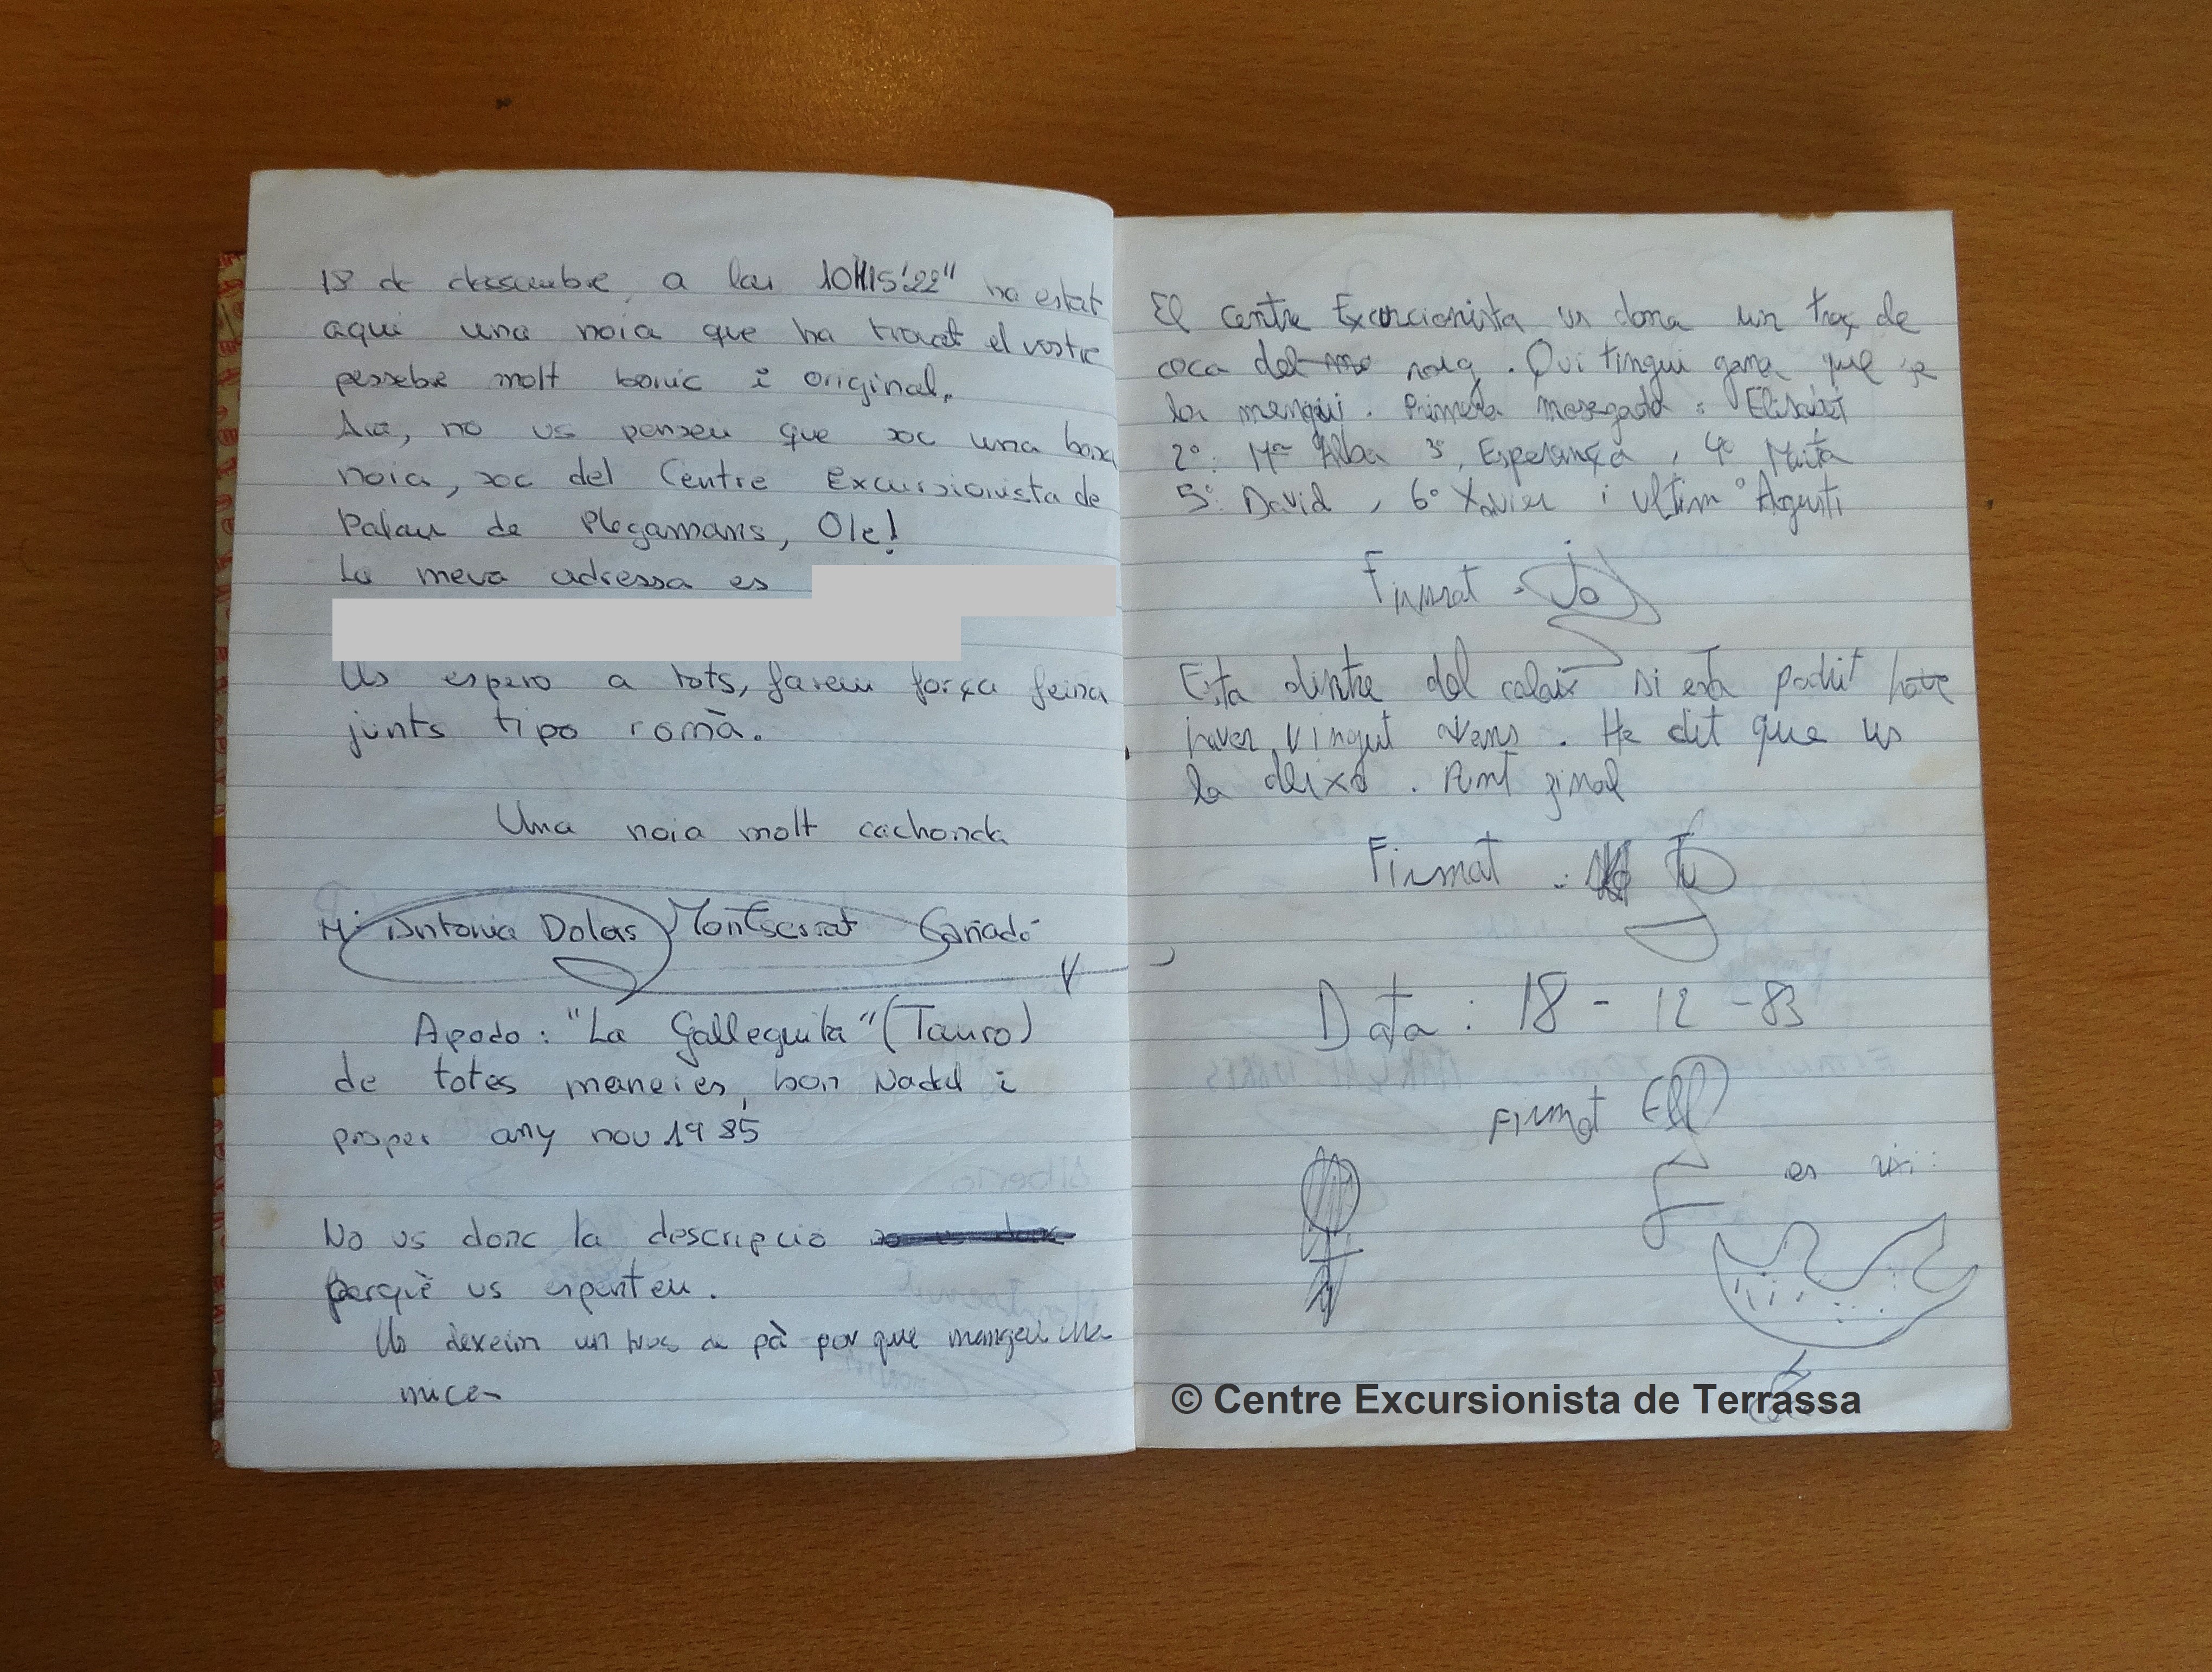 18 de dessembre, a las 10H15'22" ha estat
aqui una noia que ha trovat el vostre
pessebre molt bonic i original.
Ara, no us penseu que soc una bona
noia, soc del Centre Excursionista de
Palau de Plegamans, Ole!
La meva adressa es
Us espero a tots, farem força feina
junts tipo romà.
Una noia molt cachonda
Mª Antonia Dolas Montserrat Gañadó
Apodo: "La Galleguita" (Tauro)
de totes maneres, bon Nadal i
proper any nou 1985
No us donc la descripcio
perquè us espanteu.
Us dexeim un tros de pà por que mangeu una
mica
El centre Excurcionista us dona un troç de
coca del roig. Qui tingui gana que se
la mengui. Primera mosegada: Elisabet
2º: Mª Alba 3º, Esperança, 4º Maita
5º: David, 6º Xavier i ultim º Agusti
Firmat: Jo
Esta dintre del calaix si esta podrit
haver vingut avans. He dit que us
la deixo. Punt final
Firmat: Tu
Data: 18-12-83
Firmat Ell
es
© Centre Excursionista de Terrassa